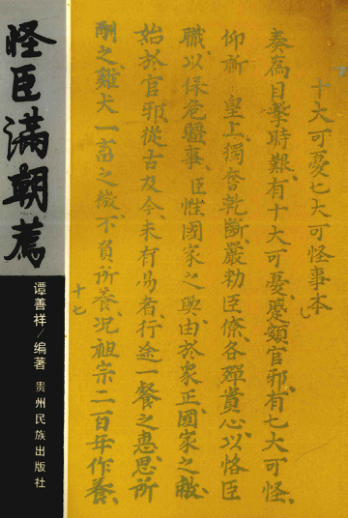 怪臣满朝荐
谭善祥/编著
贵州民族出版社
十大可憂七大可怪事本
奏爲目擊時艱、有十大可憂、蹙額官邪、有七大可怪、
仰祈 皇上獨奮乾斷、嚴勅臣僚、各殫貲心、以恪臣
職、以保危疆事、臣惟國家之興、由於衆正、國家之敝、
始於官邪、從古及今、未有易者、行途一餐之惠、思所
酬之、雞犬一畜之微、不負所養、况祖宗二百年作養、
十七